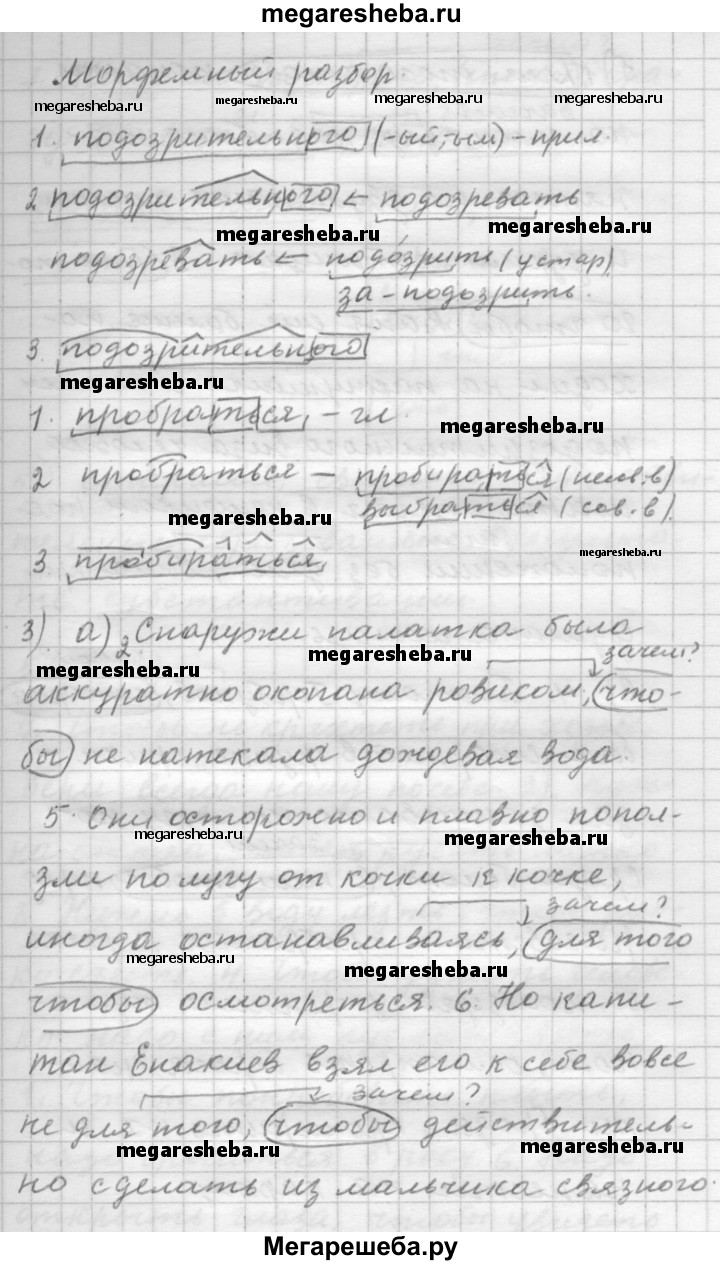 megaresheba.ru
Морфемный разбор.
megaresheba.ru megaresheba.ru megaresheba.ru megaresheba.ru
1. подозрительного (-ый, -ым) - прил.
2 подозрительного ← подозревать
megaresheba.ru megaresheba.ru
подозревать ← подозрить (устар)
за - подозрить.
3. подозрительного
megaresheba.ru
1. пробраться, - гл.
megaresheba.ru
2 пробраться - пробираться (несов.в)
megaresheba.ru выбраться (сов.в).
megaresheba.ru
3. пробираться
3). а) 2 Снаружи палатка была
megaresheba.ru зачем?
megaresheba.ru
аккуратно окопана ровиком, что-
бы не натекала дождевая вода.
5. Они осторожно и плавно попол-
megaresheba.ru megaresheba.ru
зли по лугу от кочки к кочке,
зачем?
иногда останавливаясь, для того
megaresheba.ru megaresheba.ru
чтобы осмотреться. 6. Но капи-
тан Енакиев взял его к себе вовсе
зачем?
не для того, чтобы действитель-
megaresheba.ru megaresheba.ru
но сделать из мальчика связного.
Мегарешеба.ру